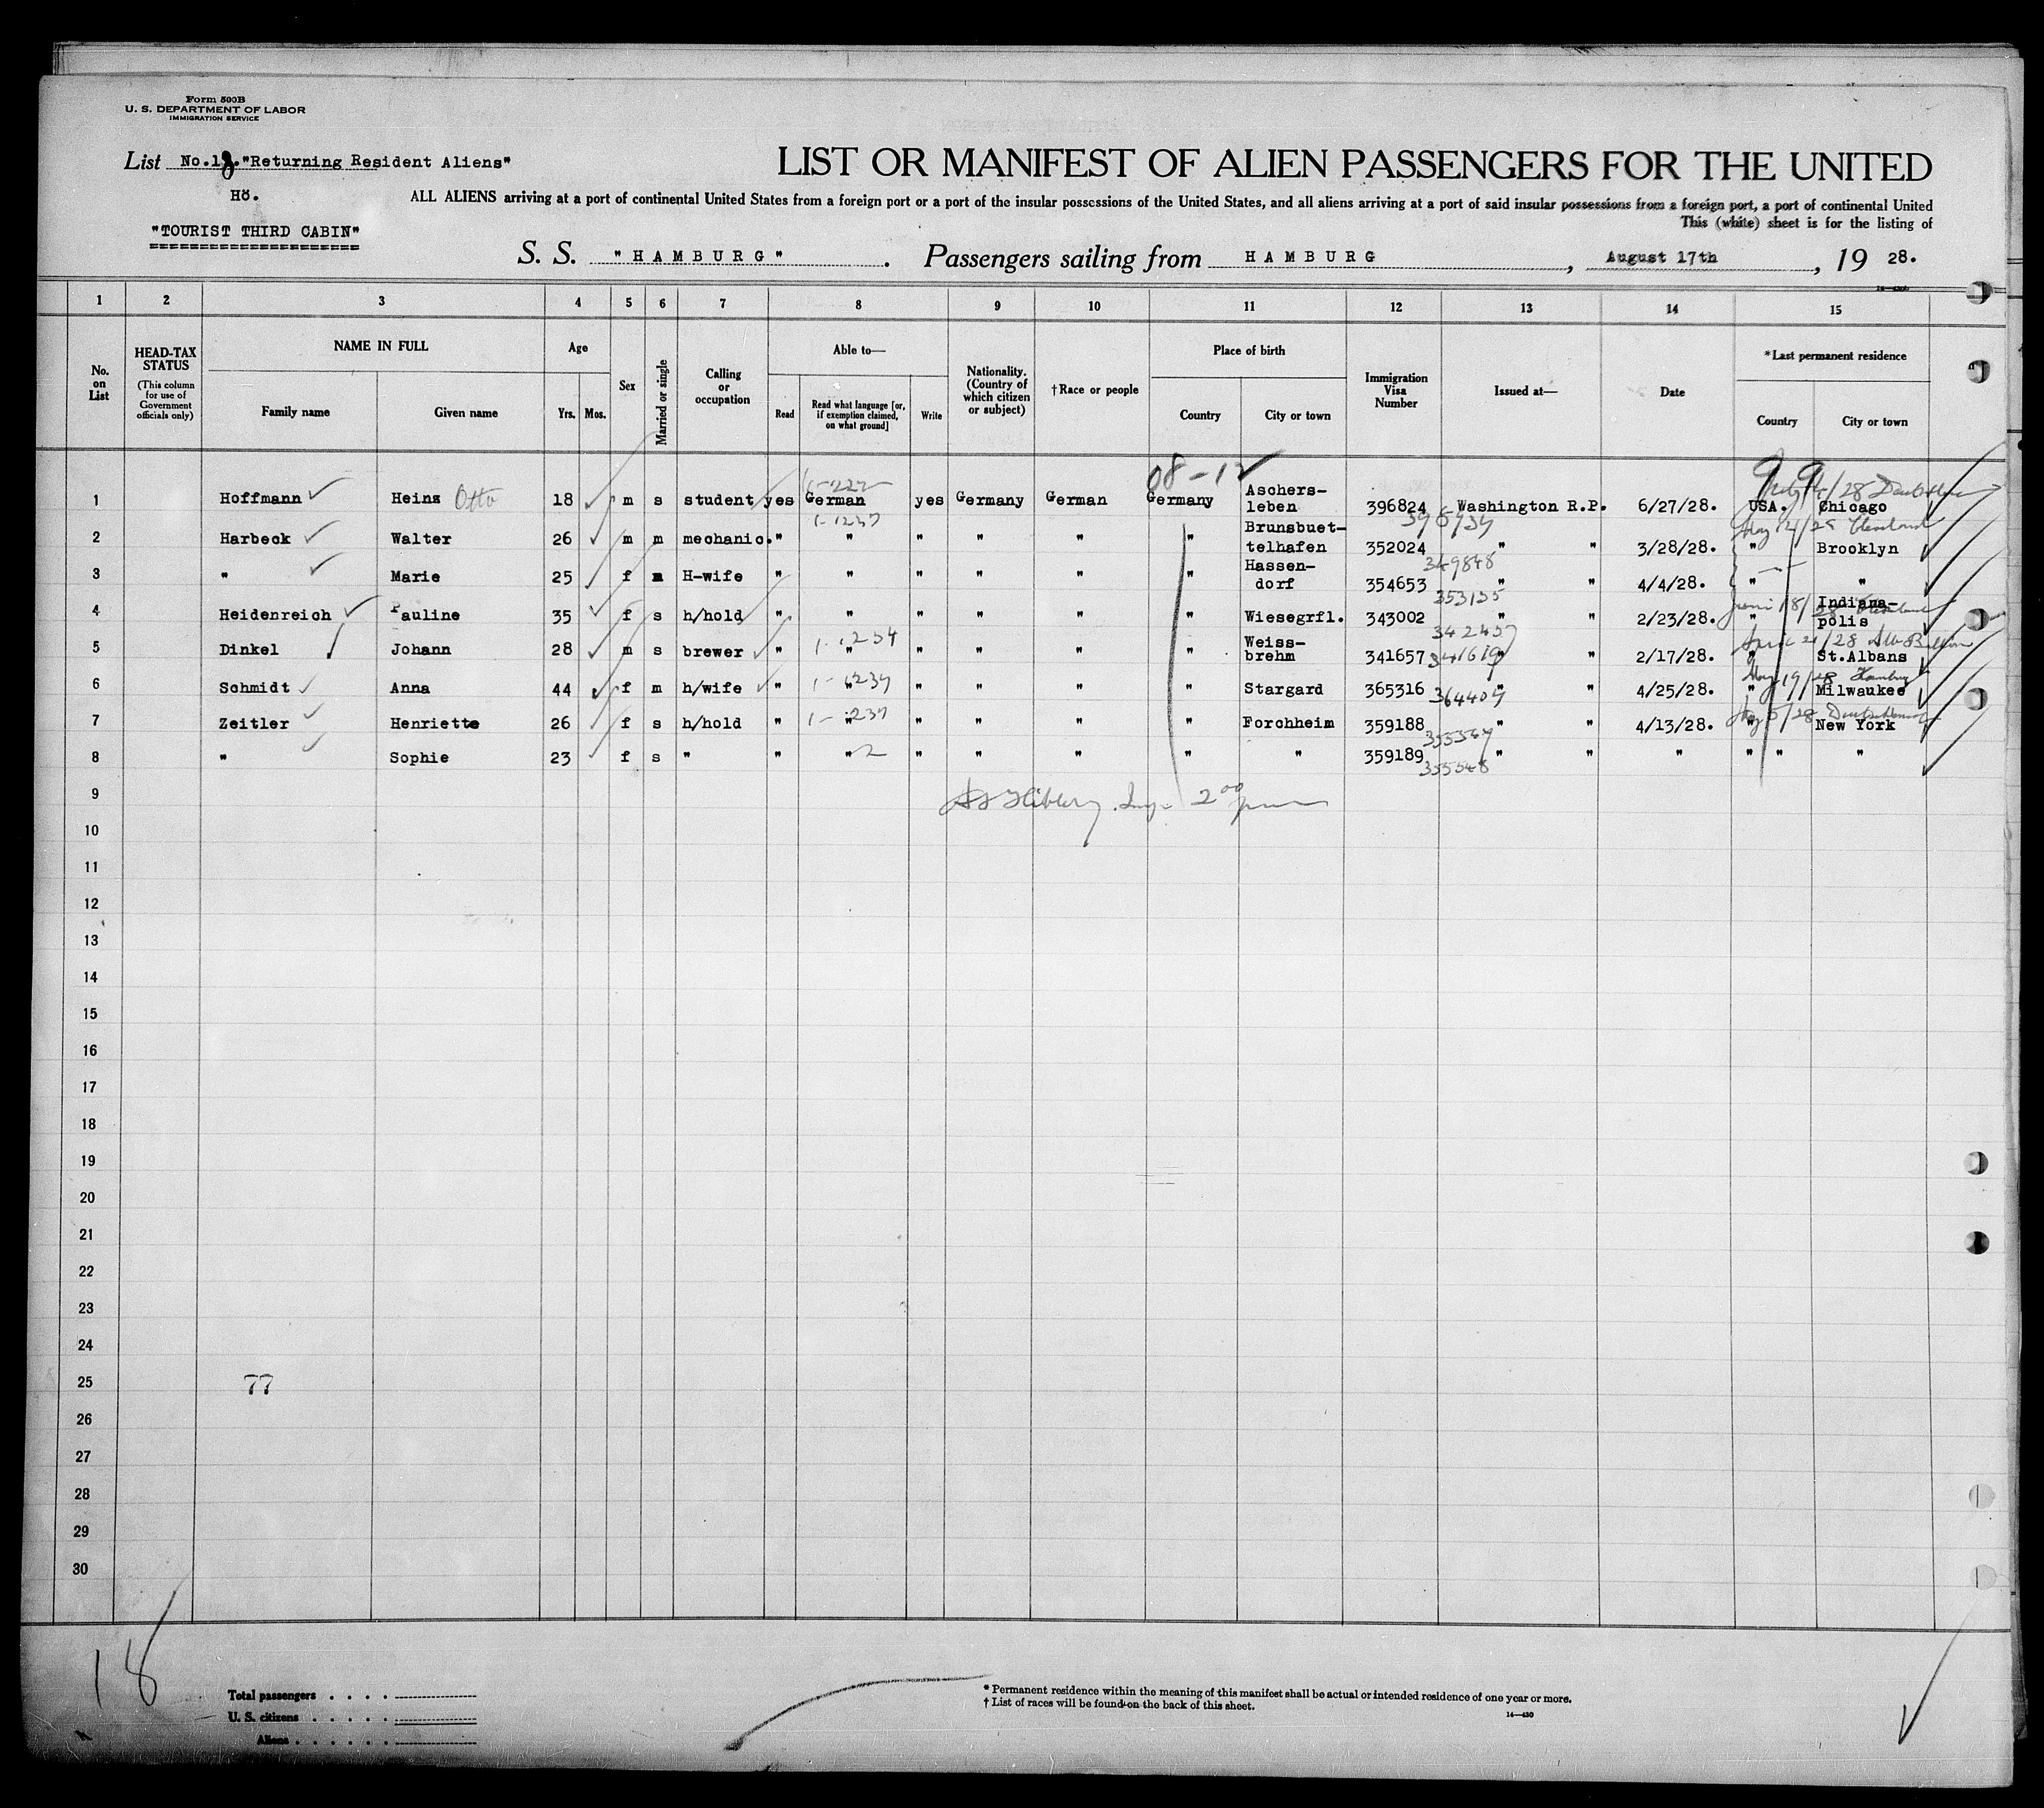 Form 500B
U. S. DEPARTMENT OF LABOR
IMMIGRATION SERVICE
List No.18. "Returning Resident Aliens"
Hö.
"TOURIST THIRD CABIN"
LIST OR MANIFEST OF ALIEN PASSENGERS FOR THE UNITED
ALL ALIENS arriving at a port of continental United States from a foreign port or a port of the insular possessions of the United States, and all aliens arriving at a port of said insular possessions from a foreign port, a port of continental United
This (white) sheet is for the listing of
S. S. "HAMBURG". Passengers sailing from HAMBURG, August 17th, 19 28.
1 2 3 4 5 6 7 8 9 10 11 12 13 14 15
No. on List
HEAD-TAX STATUS
(This column for use of Government officials only)
NAME IN FULL
Family name Given name
Age
Yrs. Mos.
Sex
Married or single
Calling or occupation
Able to—
Read
Read what language [or, if exemption claimed, on what ground]
Write
Nationality. (Country of which citizen or subject)
†Race or people
Place of birth
Country City or town
Immigration Visa Number
Issued at—
Date
*Last permanent residence
Country City or town
08-12
1 Hoffmann Heinz Otto 18 m s student yes German yes Germany German Germany Aschers-leben 396824 Washington R.P. 6/27/28. USA. Chicago
2 Harbeck Walter 26 m m mechanic. " " " " " " Brunsbuet-telhafen 352024 " " 3/28/28. " Brooklyn
349848
3 " Marie 25 f m H-wife " " " " " " Hassen-dorf 354653 " " 4/4/28. " "
353135
4 Heidenreich Pauline 35 f s h/hold " " " " " " Wiesegrfl. 343002 " " 2/23/28. " Indiana-polis
5 Dinkel Johann 28 m s brewer " " " " " " Weiss-brehm 341657 " " 2/17/28. " St.Albans
6 Schmidt Anna 44 f m h/wife " " " " " " Stargard 365316 " " 4/25/28. " Milwaukee
7 Zeitler Henriette 26 f s h/hold " " " " " " Forchheim 359188 " " 4/13/28. " New York
8 " Sophie 23 f s " " " " " " " " 359189 " " " " "
9
10
11
12
13
14
15
16
17
18
19
20
21
22
23
24
25 77
26
27
28
29
30
18
Total passengers
U. S. citizens
Aliens
* Permanent residence within the meaning of this manifest shall be actual or intended residence of one year or more.
† List of races will be found on the back of this sheet.
14—430